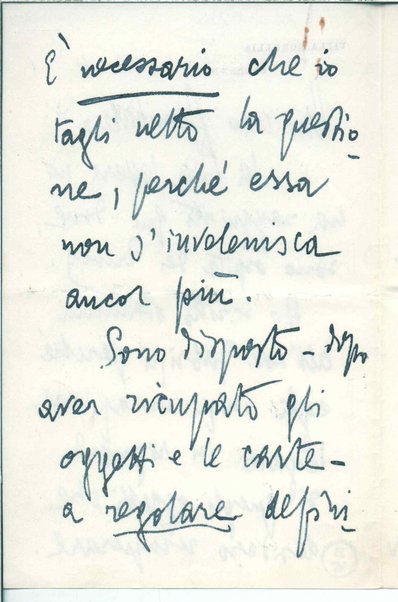 È necessario che io
tagli netto la questio-
ne, perché essa
non s'invelenisca
ancor più.
Sono disposto – dopo
aver ricuperato gli
oggetti e le carte –
a regolare defini-